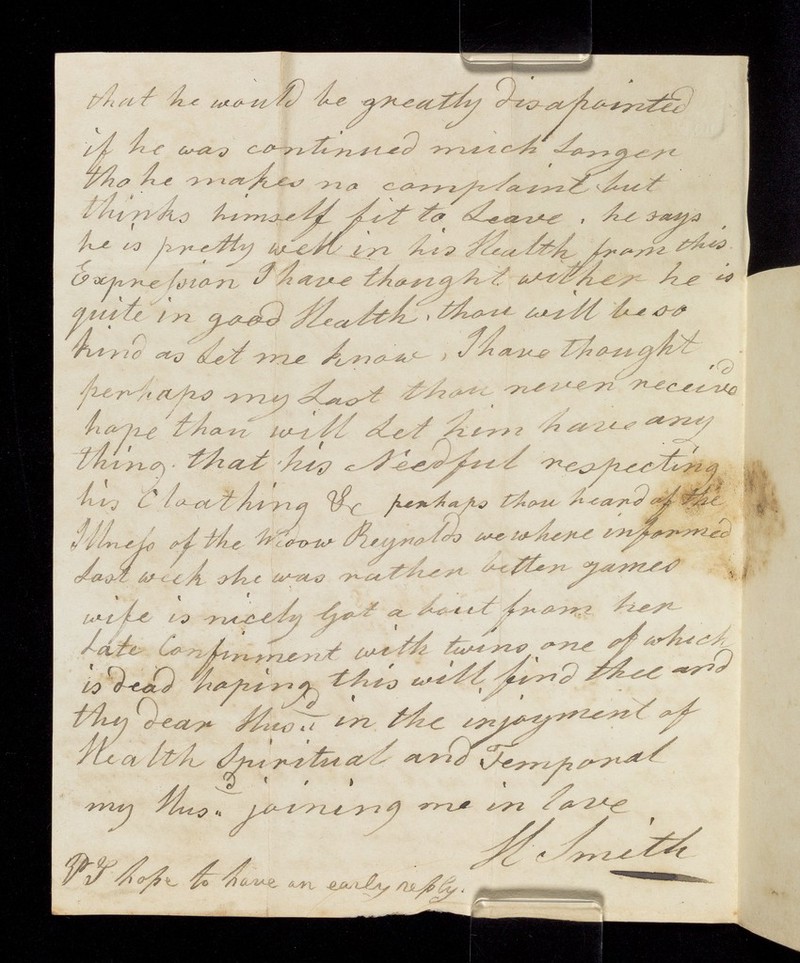 that he would be greatly disapointed
if he was continued much Longer
tho he makes no complaint but
thinks himself fit to Leave. he says
he is pretty well in his Health from this
Expression I have thought wither he is
quite in good Health. thou will be so
kind as Let me know, I have thought
perhaps my Last thou never receivd
hope thou will Let him have any
thing that his Needful respecting
his Cloathing &c perhaps thou heard of the
Illness of the Widow Reynolds we where informed
Last week she was rather better James
wife is nicely Got about from her
Late Confinment with twins one of which
is dead hoping this will find thee and
thy dear Husd in the injoyment of
Health Spiritual and Temporal
my Husd joining me in love
H Smith
PS hope to have an early reply.